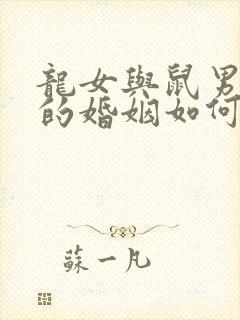 龍女與鼠男
的婚姻如何
蘇一凡